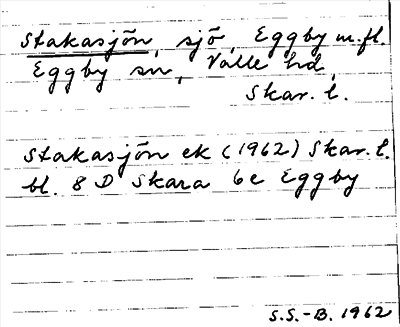 Stakasjön, sjö, Eggby m.fl.
Eggby sn, Valle hd,
Skar. l.
Stakasjön ek (1962) Skar. l.
bl. 8 D Skara 6e Eggby
S.S.-B. 1962